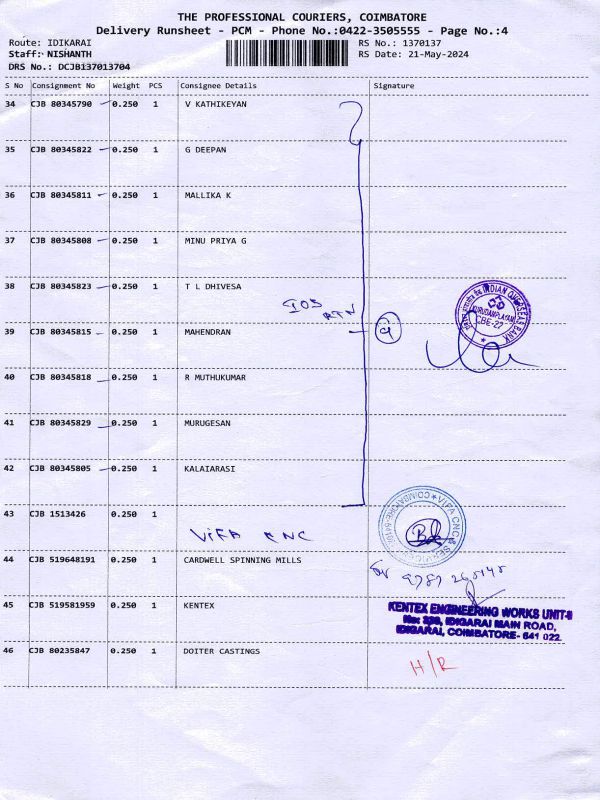 THE PROFESSIONAL COURIERS, COIMBATORE
Delivery Runsheet - PCM - Phone No.:0422-3505555 - Page No.:4
Route: IDIKARAI
RS No.: 1370137
Staff: NISHANTH
RS Date: 21-May-2024
DRS No.: DCJB137013704
S No Consignment No Weight PCS Consignee Details Signature
34 CJB 80345790 0.250 1 V KATHIKEYAN
35 CJB 80345822 0.250 1 G DEEPAN
36 CJB 80345811 0.250 1 MALLIKA K
37 CJB 80345808 0.250 1 MINU PRIYA G
38 CJB 80345823 0.250 1 T L DHIVESA
INDIAN OVERSEAS BANK
CBE-27
39 CJB 80345815 0.250 1 MAHENDRAN
9
40 CJB 80345818 0.250 1 R MUTHUKUMAR
41 CJB 80345829 0.250 1 MURUGESAN
42 CJB 80345805 0.250 1 KALAIARASI
43 CJB 1513426 0.250 1
VIFA CNC
44 CJB 519648191 0.250 1 CARDWELL SPINNING MILLS
45 CJB 519581959 0.250 1 KENTEX
KENTEX ENGINEERING WORKS UNIT-II
IDIGARAI MAIN ROAD,
IDIGARAI, COIMBATORE- 641 022.
46 CJB 80235847 0.250 1 DOITER CASTINGS
H/R